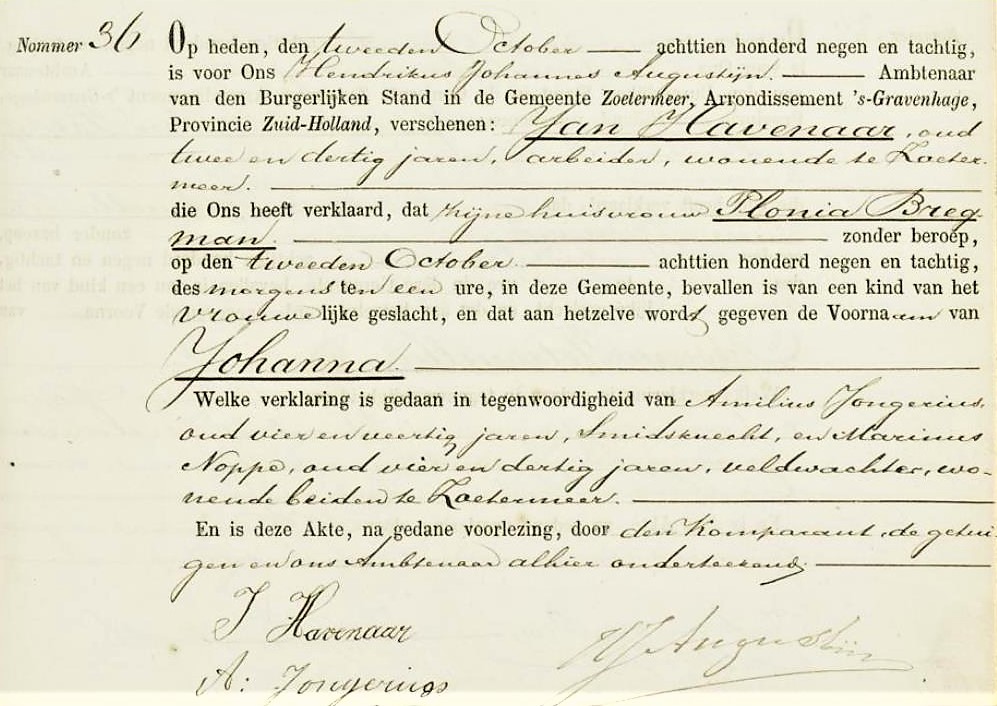 Nommer 36 Op heden, den tweeden October achttien honderd negen en tachtig,
is voor Ons Hendrikus Johannes Augustijn. Ambtenaar
van den Burgerlijken Stand in de Gemeente Zoetermeer, Arrondissement 's-Gravenhage,
Provincie Zuid-Holland, verschenen: Jan Havenaar, oud
twee en dertig jaren, arbeider, wonende te Zoeter-
meer.
die Ons heeft verklaard, dat zijne huisvrouw Plonia Breg-
man. zonder beroep,
op den tweeden October achttien honderd negen en tachtig,
des morgens ten een ure, in deze Gemeente, bevallen is van een kind van het
vrouwelijke geslacht, en dat aan hetzelve wordt gegeven de Voornaam van
Johanna.
Welke verklaring is gedaan in tegenwoordigheid van Amilius Jongerius,
oud vier en veertig jaren, Smidsknecht, en Marinus
Noppe, oud vier en dertig jaren, veldwachter, wo-
nende beiden te Zoetermeer.
En is deze Akte, na gedane voorlezing, door den Komparant, de getui-
gen en ons Ambtenaar alhier onderteekend.
J Havenaar
HJ Augustijn
A: Jongerius